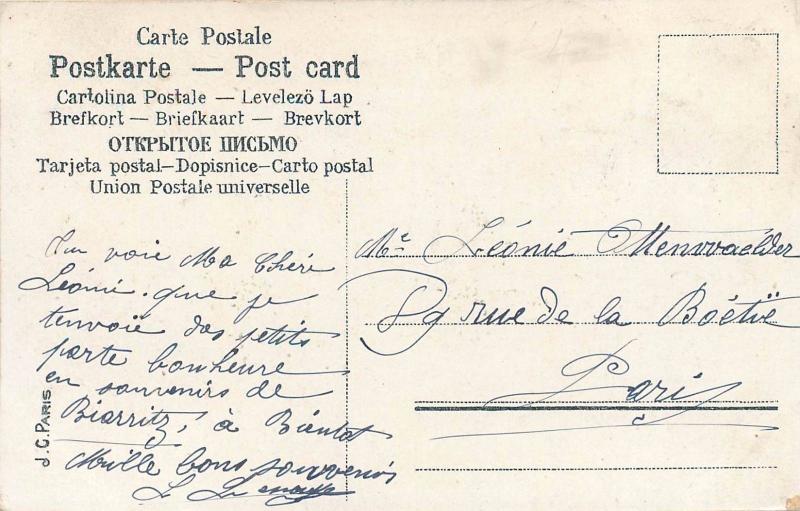 Carte Postale
Postkarte — Post card
Cartolina Postale — Levelező Lap
Brefkort — Briefkaart — Brevkort
ОТКРЫТОЕ ПИСЬМО
Tarjeta postal—Dopisnice—Carto postal
Union Postale universelle
Tu voie Ma Chéri
Léonie que je
t'envoie des petits
porte bonheure
en souvenirs de
Biarritz, à Bientot
Mille bons souvenirs
L
Me Léonie
89 rue de la Boëtie
Paris
J.C. PARIS